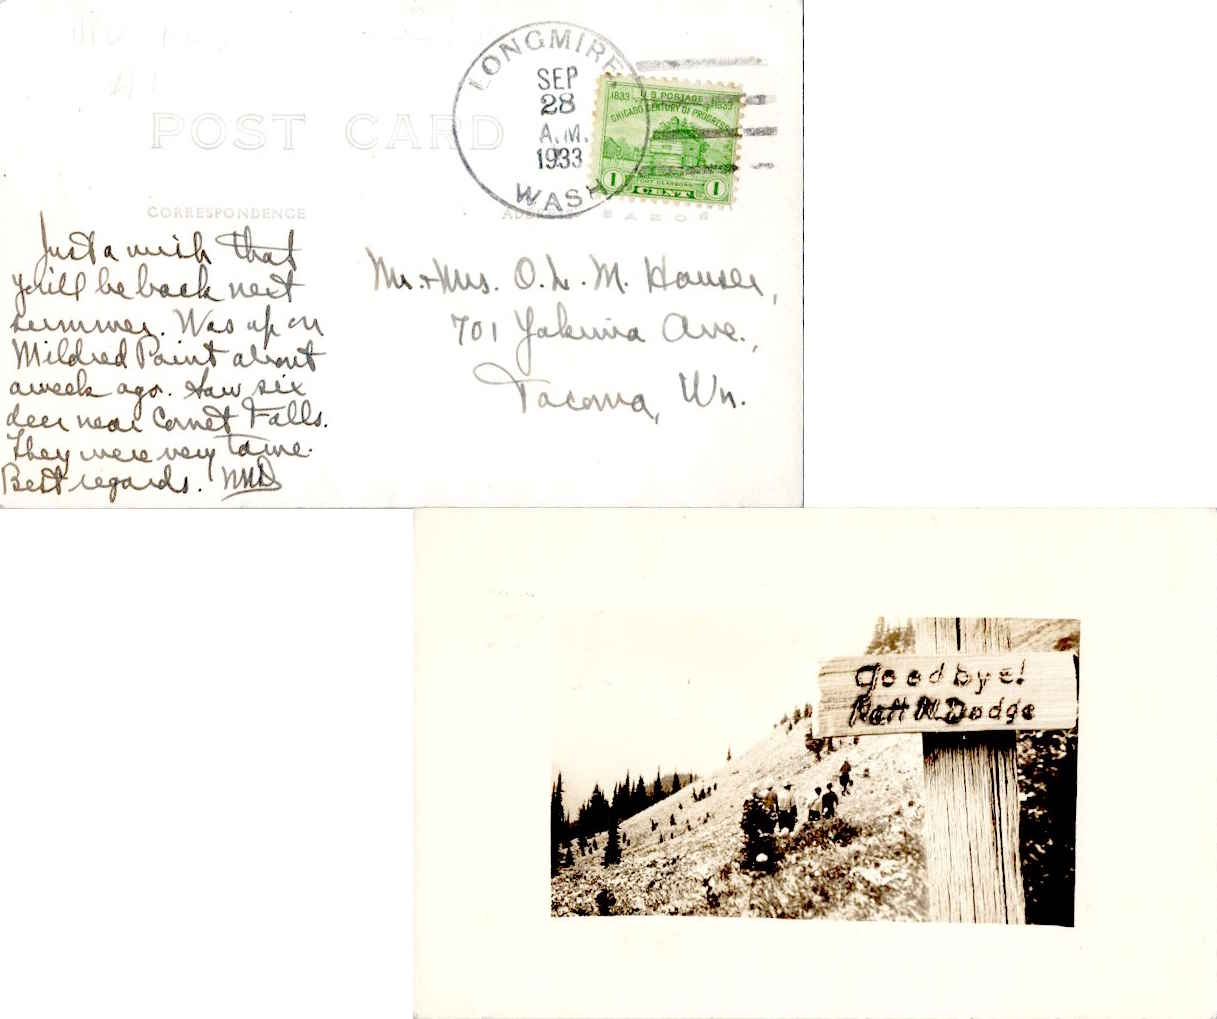 POST CARD
CORRESPONDENCE
LONGMIRE
SEP
28
A.M.
1933
WASH
U.S. POSTAGE
1833 1933
CHICAGO CENTURY OF PROGRESS
FORT DEARBORN
1 CENT 1
Just a wish that
you'll be back next
summer. Was up on
Mildred Point about
a week ago. Saw six
deer near Comet Falls.
They were very tame.
Best regards. NND
Mr. + Mrs. O. L. M. Hauser,
701 Yakima Ave.,
Tacoma, Wn.
Goodbye!
Natt N. Dodge